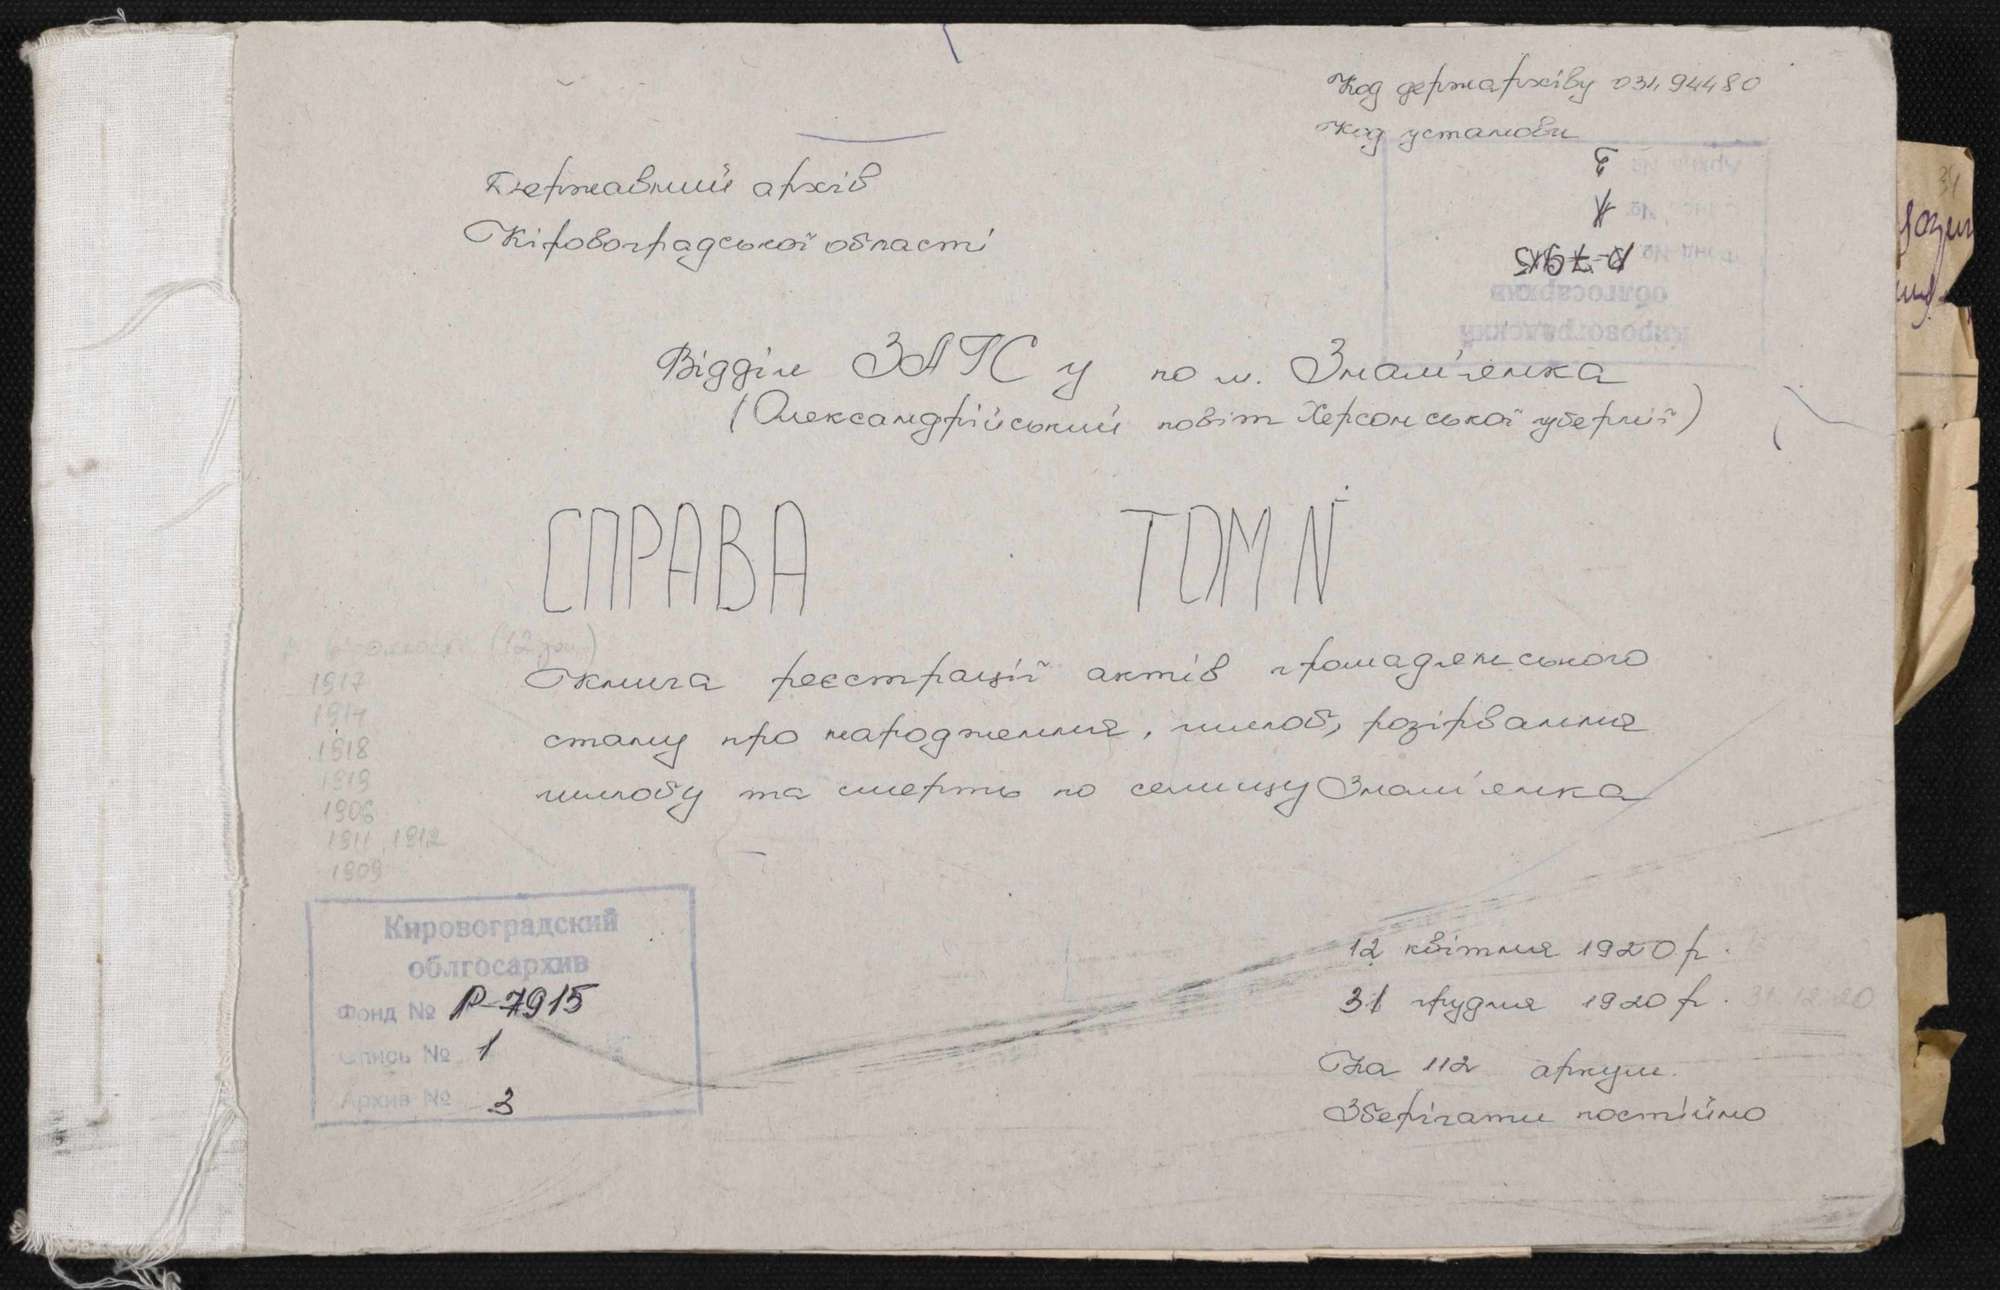 Код держархіву 03494480
Код установи
Державний архів
Кіровоградської області
Відділ ЗАГСу по м. Знам'янка
(Олександрійський повіт Херсонської губернії)
СПРАВА ТОМ N
Книга реєстрації актів громадянського
стану про народження, шлюб, розірвання
шлюбу та смерть по селищу Знам'янка
1917
1914
1918
1919
1906
1911, 1912
1909
Кировоградский
облгосархив
Фонд № Р-7915
Опись № 1
Архив № 3
12 квітня 1920 р.
31 грудня 1920 р. 31.12.20
На 112 аркуш.
Зберігати постійно